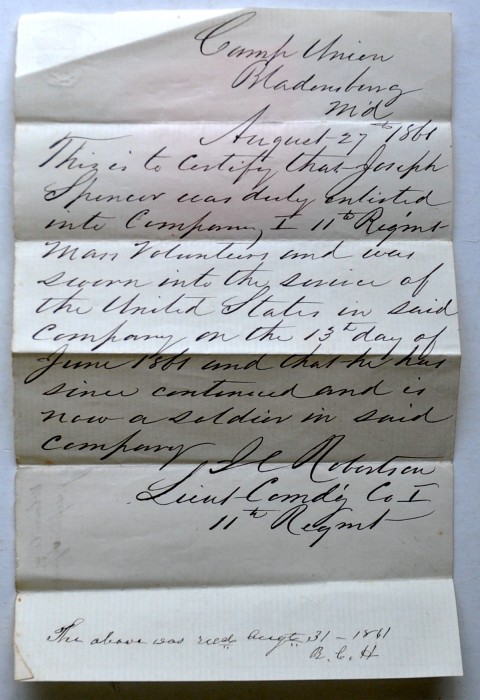 Camp Union
Bladensburg
Md
August 27th 1861
This is to certify that Joseph
Spencer was duly enlisted
into Company I 11th Regmt
Mass Volunteers and was
sworn into the service of
the United States in said
Company on the 13th day of
June 1861 and that he has
since continued and is
now a soldier in said
Company
J C Robertson
Lieut Comdg Co I
11th Regmt
The above was recd Augt 31 - 1861
B. C. H